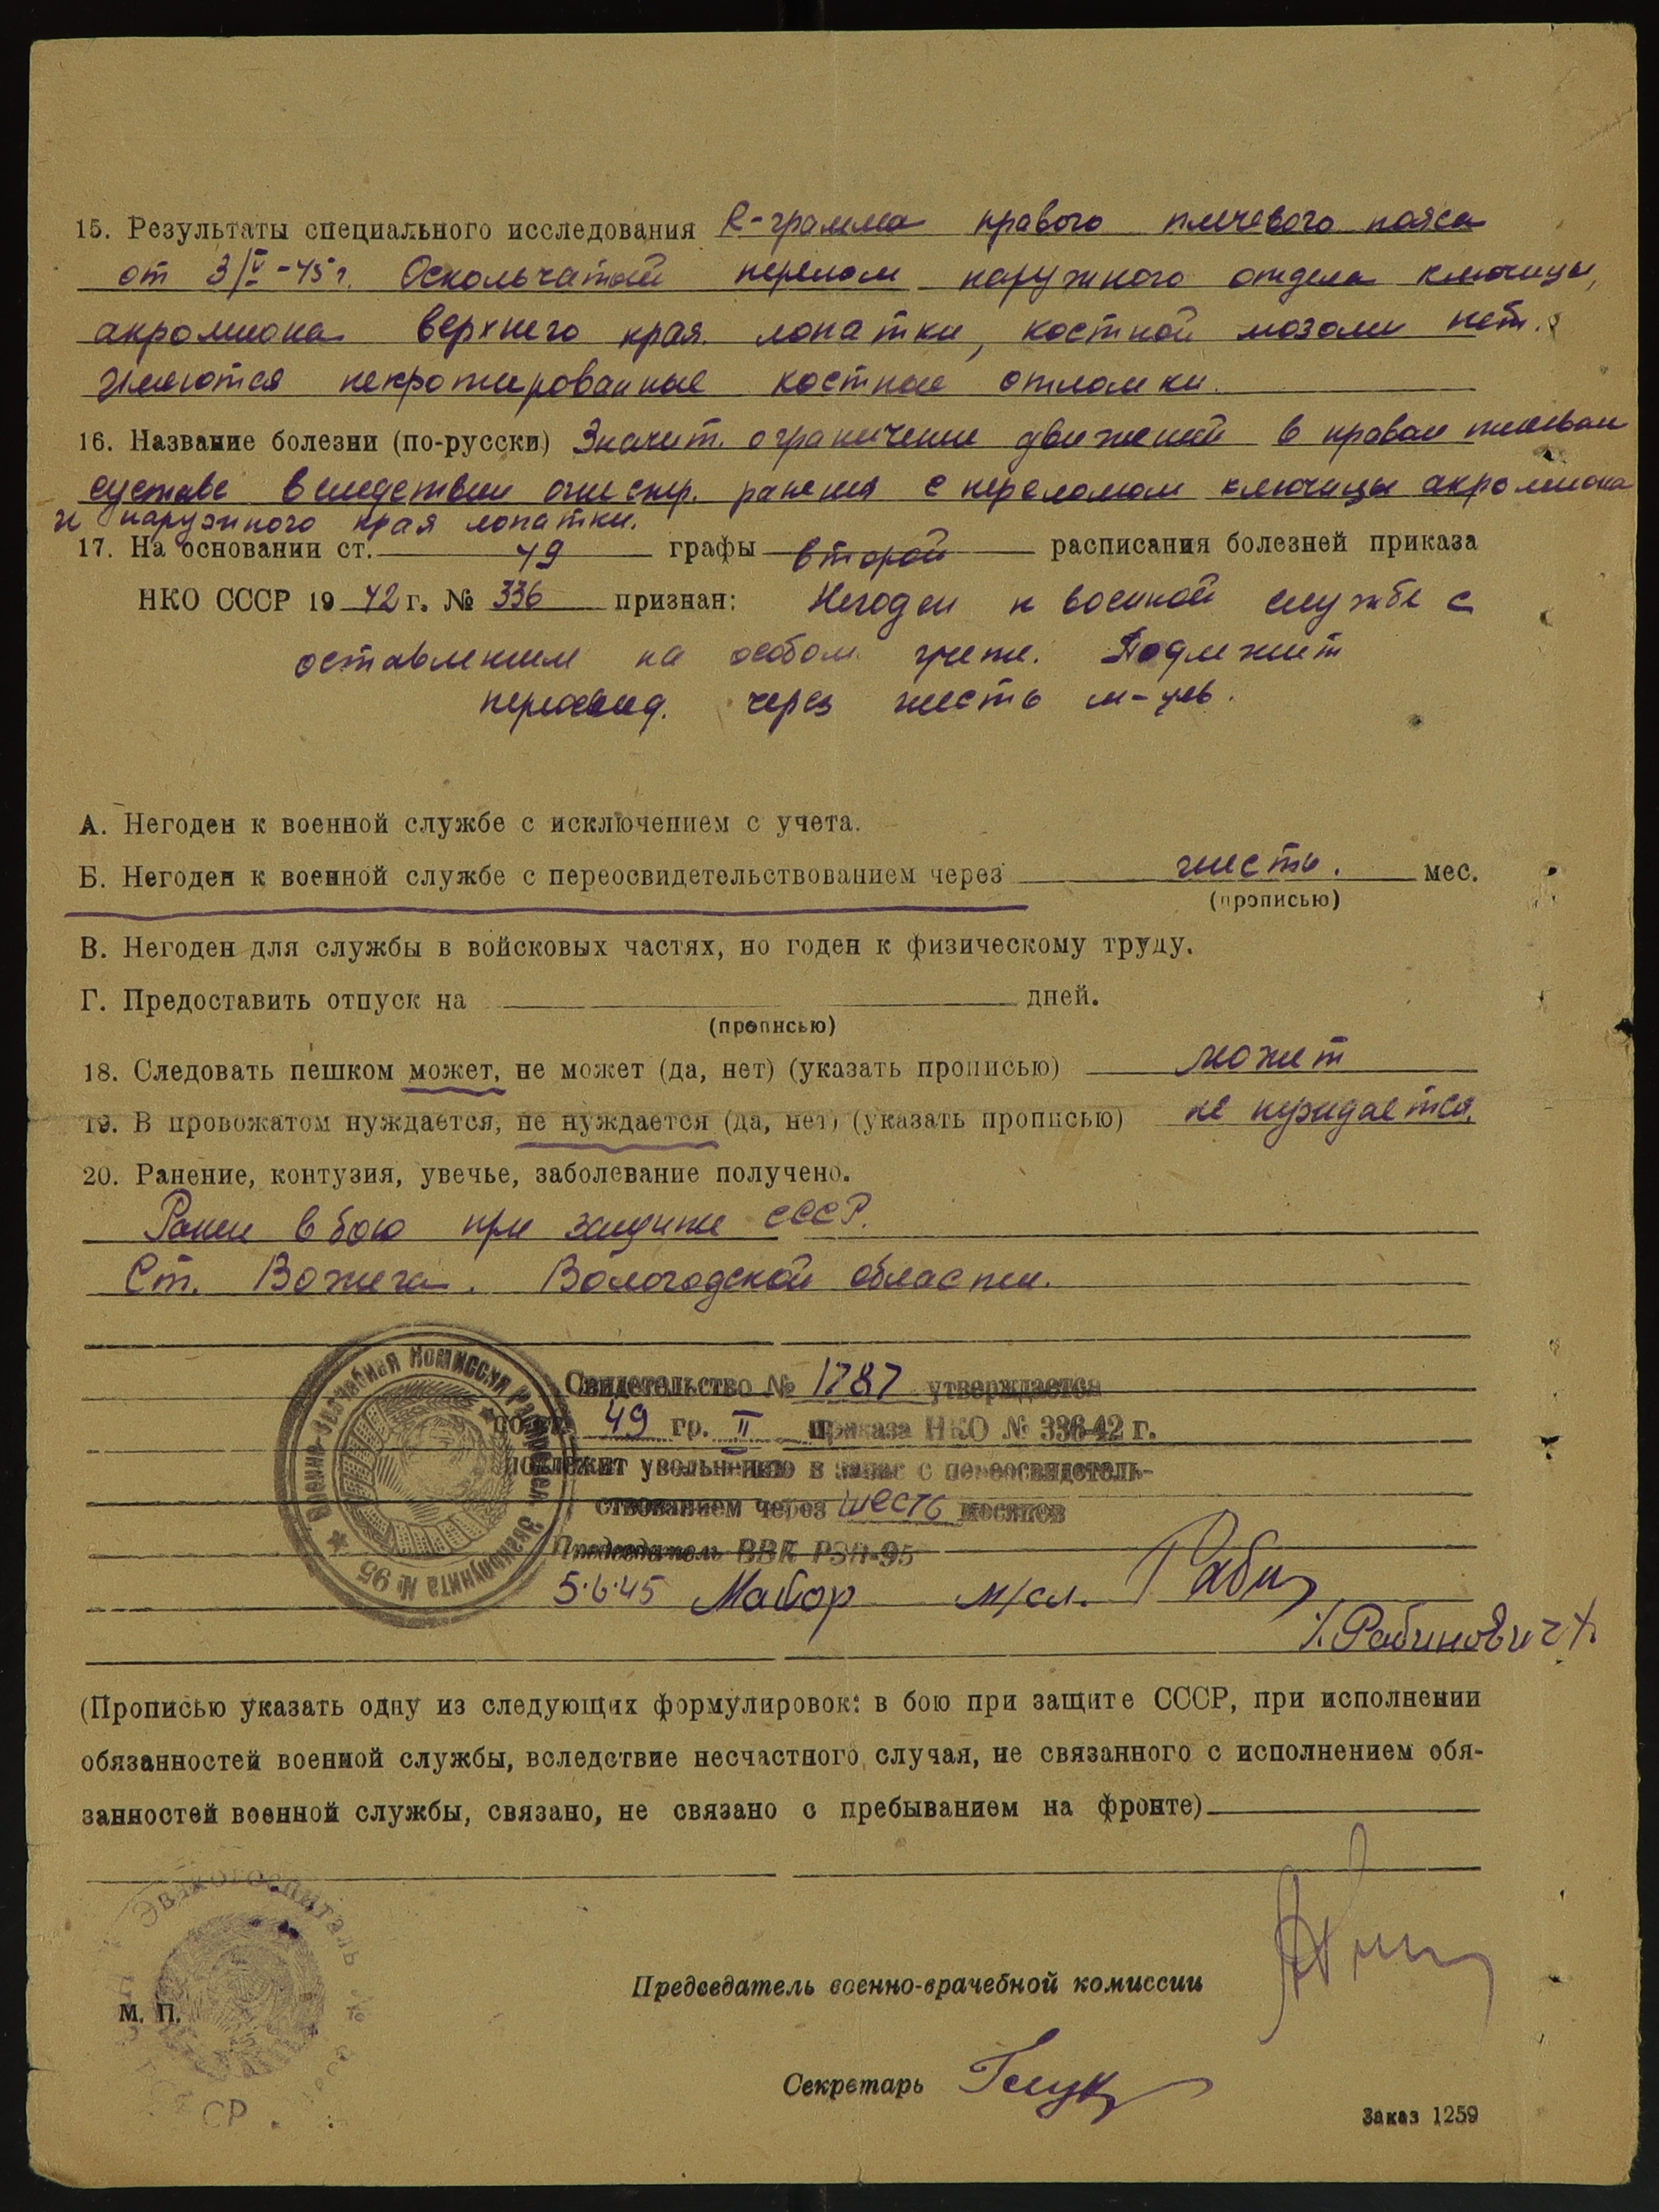 15. Результаты специального исследования R-грамма правого плечевого пояса
от 3/V-45 г. Оскольчатый перелом наружного отдела ключицы,
акромиона верхнего края лопатки, костной мозоли нет.
Имеются некротированные костные отломки.
16. Название болезни (по-русски) Значит. ограничение движений в правом плечевом
суставе вследствии огнестр. ранения с переломом ключицы акромиона
и наружного края лопатки.
17. На основании ст. 49 графы второй расписания болезней приказа
НКО СССР 1942 г. № 336 признан: Негоден к военной службе с
оставлением на особом учете. Подлежит
переосвид. через шесть м-цев.
А. Негоден к военной службе с исключением с учета.
Б. Негоден к военной службе с переосвидетельствованием через шесть. мес.
(прописью)
В. Негоден для службы в войсковых частях, но годен к физическому труду.
Г. Предоставить отпуск на дней.
(прописью)
18. Следовать пешком может, не может (да, нет) (указать прописью) может
19. В провожатом нуждается, не нуждается (да, нет) (указать прописью) не нуждается.
20. Ранение, контузия, увечье, заболевание получено.
Ранен в бою при защите СССР.
Ст. Вожега. Вологодской области.
Военно-Врачебная Комиссия Эвакопункта № 95
Свидетельство № 1787 утверждается
по ст. 49 гр. II приказа НКО № 336-42 г.
подлежит увольнению в запас с переосвидетель-
ствованием через шесть месяцев
Председатель ВВК РЭП-95
5.6.45 Майор м/сл. Рабин
/Рабинович/
(Прописью указать одну из следующих формулировок: в бою при защите СССР, при исполнении
обязанностей военной службы, вследствие несчастного случая, не связанного с исполнением обя-
занностей военной службы, связано, не связано с пребыванием на фронте)
Эвакогоспиталь №
М. П.
СР
Председатель военно-врачебной комиссии
Секретарь
Заказ 1259